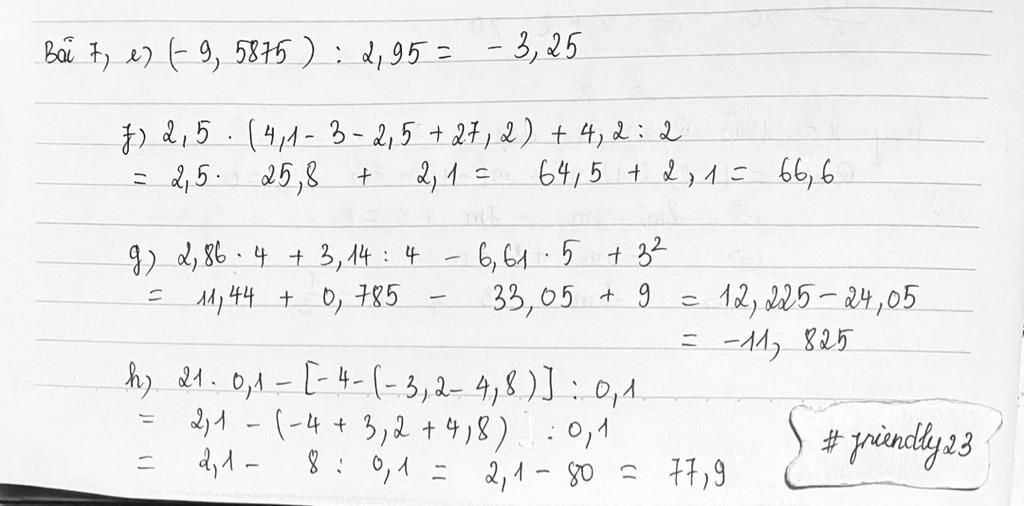 Bài 7, e) (- 9, 5875 ) : 2,95 = - 3,25
f) 2,5 . (4,1 - 3 - 2,5 + 27,2) + 4,2 : 2
= 2,5 . 25,8 + 2,1 = 64,5 + 2,1 = 66,6
g) 2,86 . 4 + 3,14 : 4 - 6,61 . 5 + 3²
= 11,44 + 0,785 - 33,05 + 9 = 12,225 - 24,05
= -11, 825
h) 21 . 0,1 - [- 4 - (- 3,2 - 4,8)] : 0,1
= 2,1 - (-4 + 3,2 + 4,8) : 0,1
= 2,1 - 8 : 0,1 = 2,1 - 80 = 77,9
# friendly23